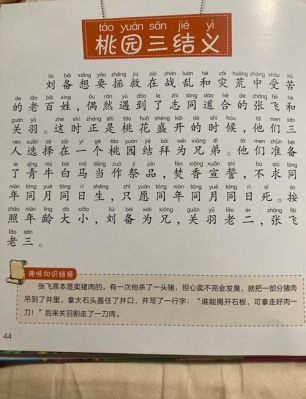 táo yuán sān jié yì
桃园三结义
liú bèi xiǎng yào zhěng jiù zài zhàn luàn hé zāi huāng zhōng shòu kǔ
刘备想要拯救在战乱和灾荒中受苦
de lǎo bǎi xìng ǒu rán yù dào le zhì tóng dào hé de zhāng fēi hé
的老百姓，偶然遇到了志同道合的张飞和
guān yǔ zhè shí zhèng shì táo huā shèng kāi de shí hou tā men sān
关羽。这时正是桃花盛开的时候，他们三
rén xuǎn zé zài yí gè táo yuán jié bài wéi xiōng dì tā men zhǔn bèi
人选择在一个桃园结拜为兄弟。他们准备
le qīng niú bái mǎ dàng zuò jì pǐn fén xiāng xuān shì bù qiú tóng
了青牛白马当作祭品，焚香宣誓，不求同
nián tóng yuè tóng rì shēng zhǐ yuàn tóng nián tóng yuè tóng rì sǐ àn
年同月同日生，只愿同年同月同日死。按
zhào nián líng dà xiǎo liú bèi wéi xiōng guān yǔ lǎo èr zhāng fēi
照年龄大小，刘备为兄，关羽老二，张飞
lǎo sān
老三。
趣味知识链接
张飞原本是卖猪肉的，有一次他杀了一头猪，担心卖不完会发臭，就把一部分猪肉
吊到了井里，拿大石头盖住了井口，并写了一行字：“谁能揭开石板，可拿走好肉一
刀！”后来关羽割走了一刀肉。
44